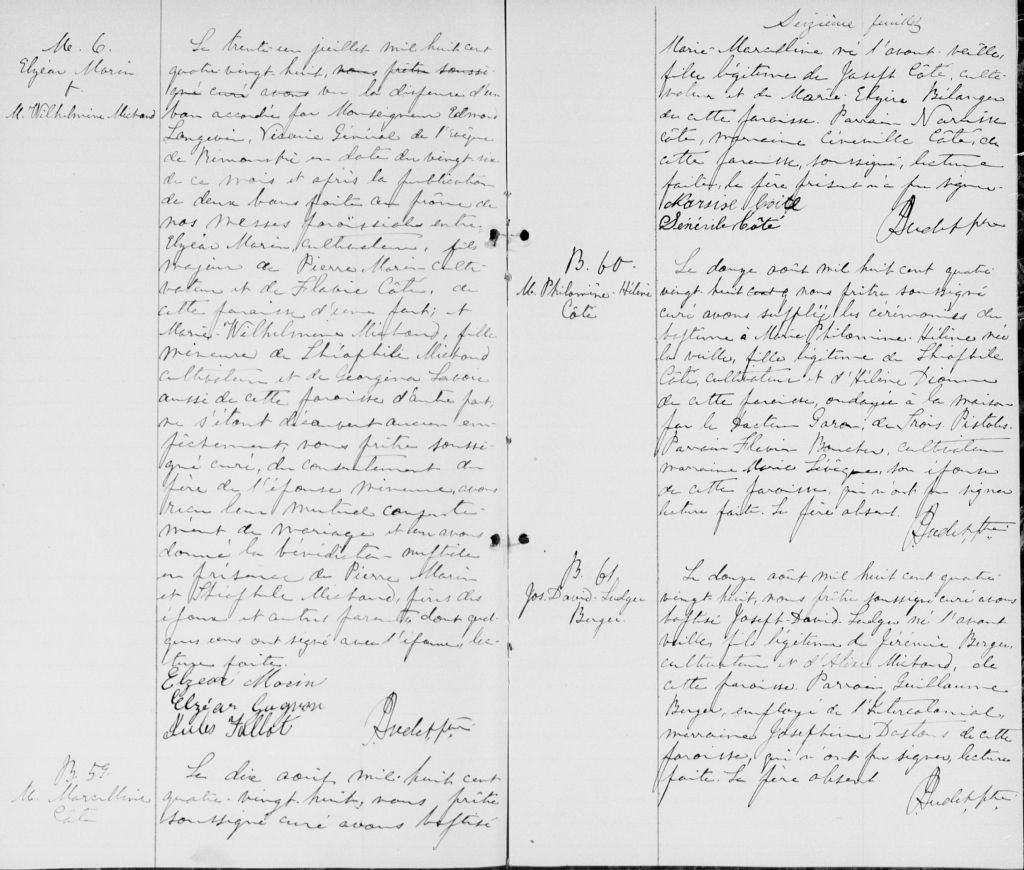 M. 6.
Elzéar Morin
+
M. Wilhelmine Michaud
Le trente-un juillet mil huit cent
quatre vingt huit, nous prêtre soussi-
gné curé avons vu la dispense d'un
ban accordée par Monseigneur Edmond
Langevin, Vicaire Général de l'évêque
de Rimouski en date du vingt six
de ce mois et après la publication
de deux bans faite au prône de
nos messes paroissiales entre
Elzéar Morin, cultivateur, fils
majeur de Pierre Morin culti-
vateur et de Flavie Côté, de
cette paroisse d'une part; et
Marie-Wilhelmine Michaud, fille
mineure de Théophile Michaud
cultivateur et de Georgina Lavoie
aussi de cette paroisse d'autre part,
ne s'étant découvert aucun em-
pêchement, nous prêtre soussi-
gné curé, du consentement du
père de l'épouse mineure, avons
reçu leur mutuel consente-
ment de mariage et leur avons
donné la bénédiction nuptiale
en présence de Pierre Morin
et Théophile Michaud, pères des
époux et autres parents dont quel-
ques uns ont signé avec l'époux, lec-
ture faite.
Elzear Morin
Elzéar Gagnon
Jules Tallot
Audet, ptre
B. 59.
M. Marcelline
Côté
Le dix août mil huit cent
quatre-vingt huit, nous prêtre
soussigné curé avons baptisé
Seizième feuillet
Marie-Marcelline né l'avant-veille,
fille légitime de Joseph Côté, culti-
vateur et de Marie-Elzire Bélanger
de cette paroisse. Parrain Narcisse
Côté, marraine Côté, de
cette paroisse, soussigné, lecture
faite, le père présent n'a pu signer.
Narsise Coité
Sénérile Côté
Audet ptre
B. 60.
M. Philomine-Hélène
Côté
Le douze août mil huit cent quatre
vingt huit cent nous prêtre soussigné
curé avons suppléé les cérémonies du
baptême à Marie Philomine-Hélène née
la veille, fille légitime de Théophile
Côté, cultivateur et d'Hélène Dionne
de cette paroisse, ondoyée à la maison
par le Docteur Garon, de Trois Pistoles.
Parrain Flavien Boucher, cultivateur
marraine Marie Lévêque, son épouse
de cette paroisse, qui n'ont pu signer
lecture faite. Le père absent.
Audet, ptre
B. 61.
Jos. David-Ludger
Berger
Le douze août mil huit cent quatre
vingt huit, nous prêtre soussigné curé avons
baptisé Joseph-David-Ludger né l'avant
veille, fils légitime de Jérémie Berger,
cultivateur et d'Alise Michaud, de
cette paroisse. Parrain Guillaume
Berger, employé de l'Intercolonial,
marraine Josephine Dastous de cette
paroisse, qui n'ont pu signer, lecture
faite. Le père absent
Audet, ptre